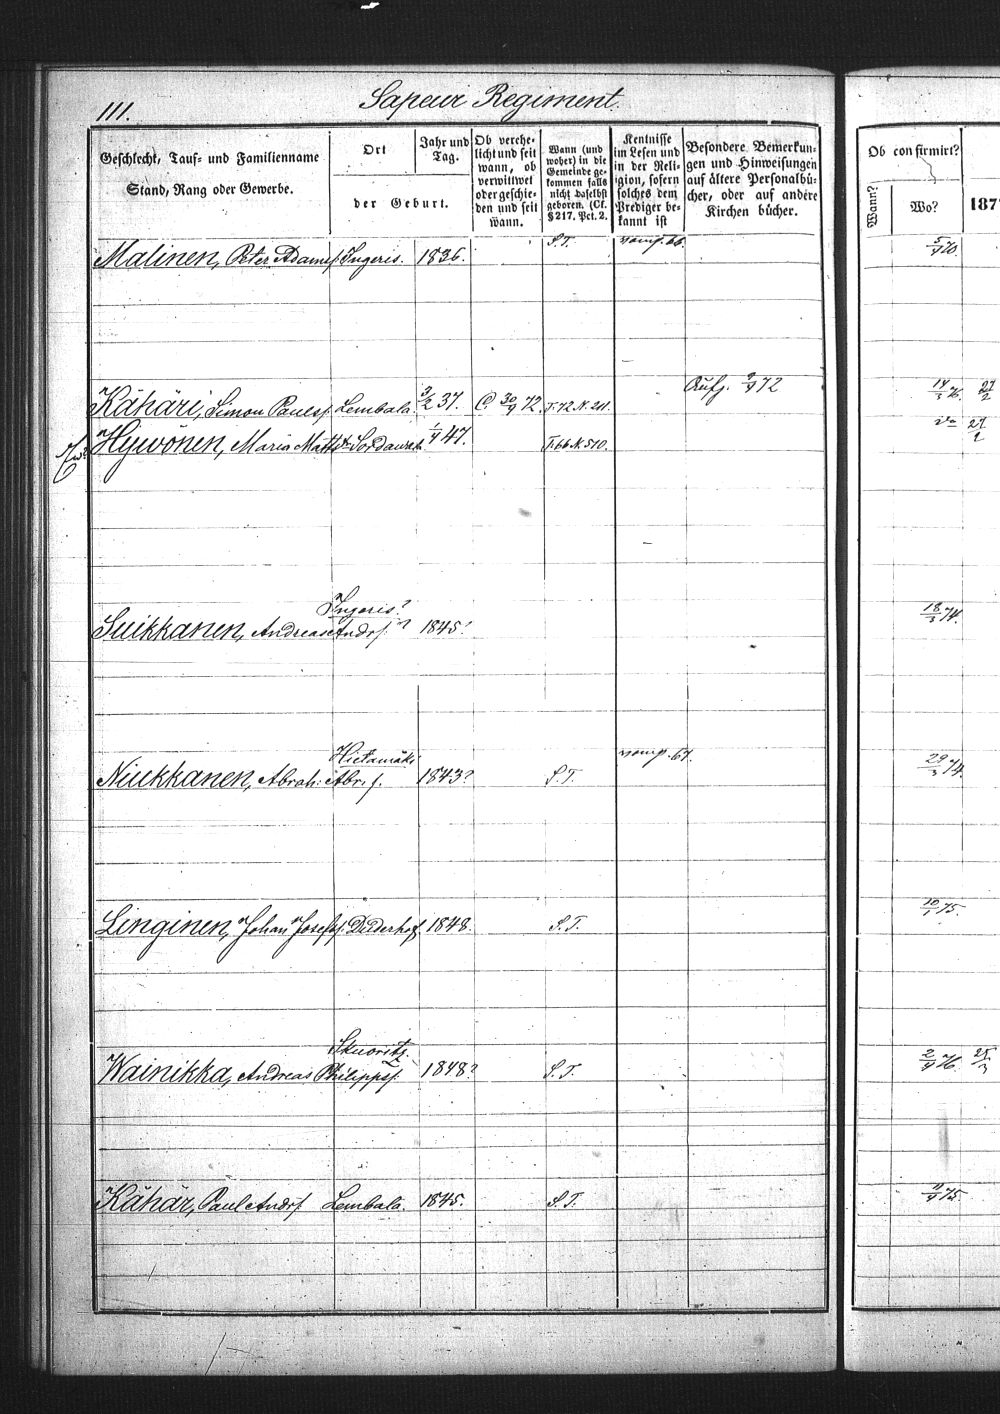 111.
Sapeur Regiment.
Geschlecht, Tauf- und Familienname
Stand, Rang oder Gewerbe.
Ort
der Geburt.
Jahr und
Tag.
Ob verehe-
licht und seit
wann, ob
verwittwet
oder geschie-
den und seit
wann.
Wann (und
woher) in die
Gemeinde ge-
kommen falls
nicht daselbst
geboren. (Cf.
§ 217. Pct. 2.
Kentnisse
im Lesen und
in der Reli-
gion, sofern
solches dem
Prediger be-
kannt ist
Besondere Bemerkun-
gen und Hinweisungen
auf ältere Personalbü-
cher, oder auf andere
Kirchen bücher.
Ob confirmirt?
Wann?
Wo?
187
Malinen, Peter Adamsf. Ingeris. 1836. S.T. 5/4 70.
Kähäri, Simon Paulsf. Lembala. 3/2 37. C. 30/9 72 T.72.N.211. Aufg. 3/9 72 14/3 76. 27/2
Hywönen, Maria Matts 1/4 47. T.66.N.510. 27/2
Ingeris?
Suikkanen, Andreas Andrs. ? 1845? 18/3 74.
Hietamäki
Niukkanen, Abrah. Abr. f. 1843? S.T. 29/3 74.
Linginen, Johan Josefsf. Duderhof. 1848. S.T. 10/1 75.
Skuoritz.
Wainikka, Andreas Philippsf. 1848? S.T. 2/4 76. 25/3
Kähär, Paul Andrs Lembala. 1845. S.T. 2/4 75.